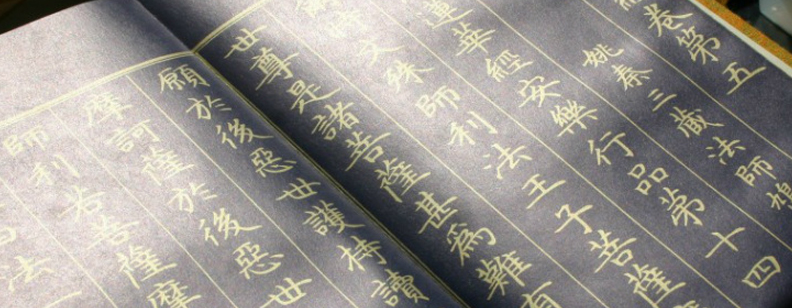 卷第五
姚秦三藏法師鳩
蓮華經安樂行品第十四
時文殊師利法王子菩薩
世尊是諸菩薩甚為難有
願於後惡世護持讀
摩訶薩於後惡世
師利若菩薩摩
法一